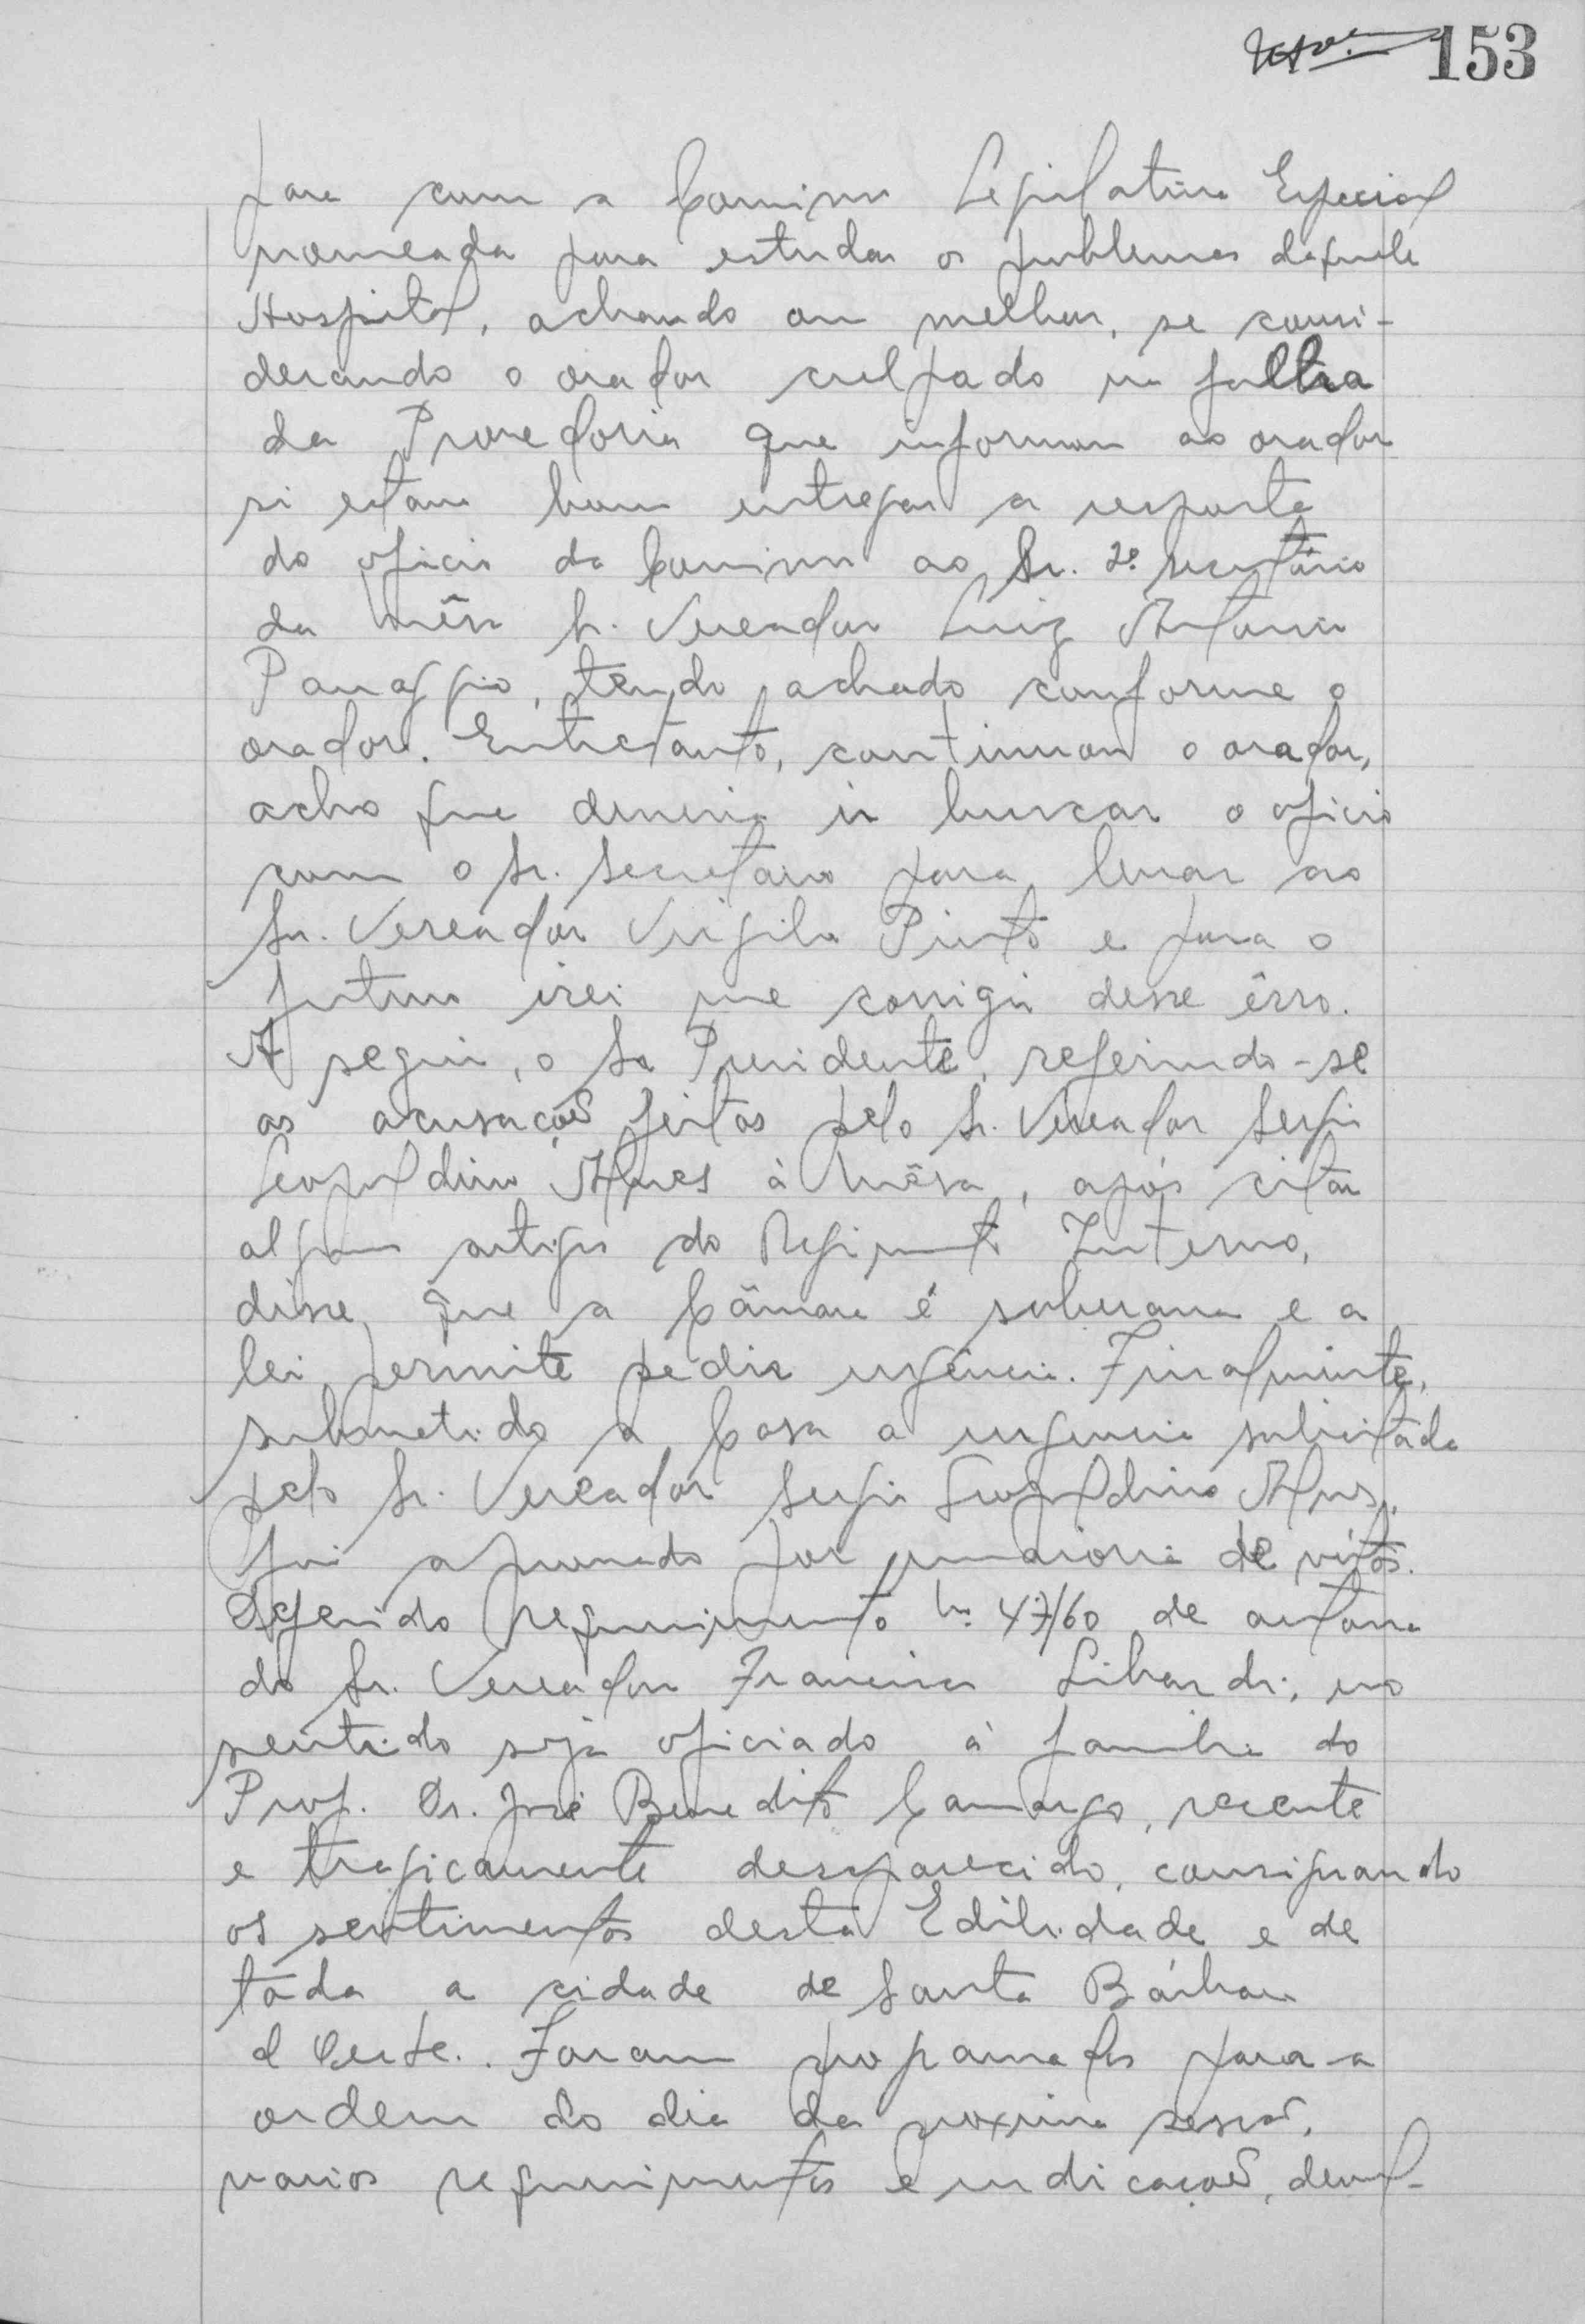 153
para com a Comissão Legislativa Especial
nomeada para estudar os problemas daquele
Hospital, achando ou melhor, se consi-
derando o orador culpado na falta
da Provedoria que informou ao orador
si estava bom entregar a resposta
do oficio da Comissão ao Sr. 2º Secretário
da mêsa Sr. Vereador Luiz Antonio
Panaggio, tendo achado conforme o
orador. Entretanto, continuou o orador,
acho que deveria ir buscar o oficio
com o Sr. Secretario para levar ao
Sr. Vereador Virgilio Pinto e para o
futuro irei me corrigir desse êrro.
A seguir, o Sr Presidente, referindo-se
as acusações feitas pelo Sr. Vereador Sergio
Leopoldino Alves à Mêsa, após citar
alguns artigos do Regimento Interno,
disse que a Câmara é soberana e a
lei permite pedir urgência. Finalmente,
submetido a Casa a urgencia solicitada
pelo Sr. Vereador Sergio Leopoldino Alves,
foi aprovado por maioria de vótos.
Deferido requerimento nº 47/60 de autoria
do Sr. Vereador Francisco Libardi, no
sentido seja oficiado à familia do
Prof. Dr. José Benedito Camargo, recente
e tragicamente desaparecido, consignando
os sentimentos desta Edilidade e de
tôda a cidade de Santa Bárbara
d'Oeste. Foram programados para a
ordem do dia da proxima sessão,
varios requerimentos e indicações,